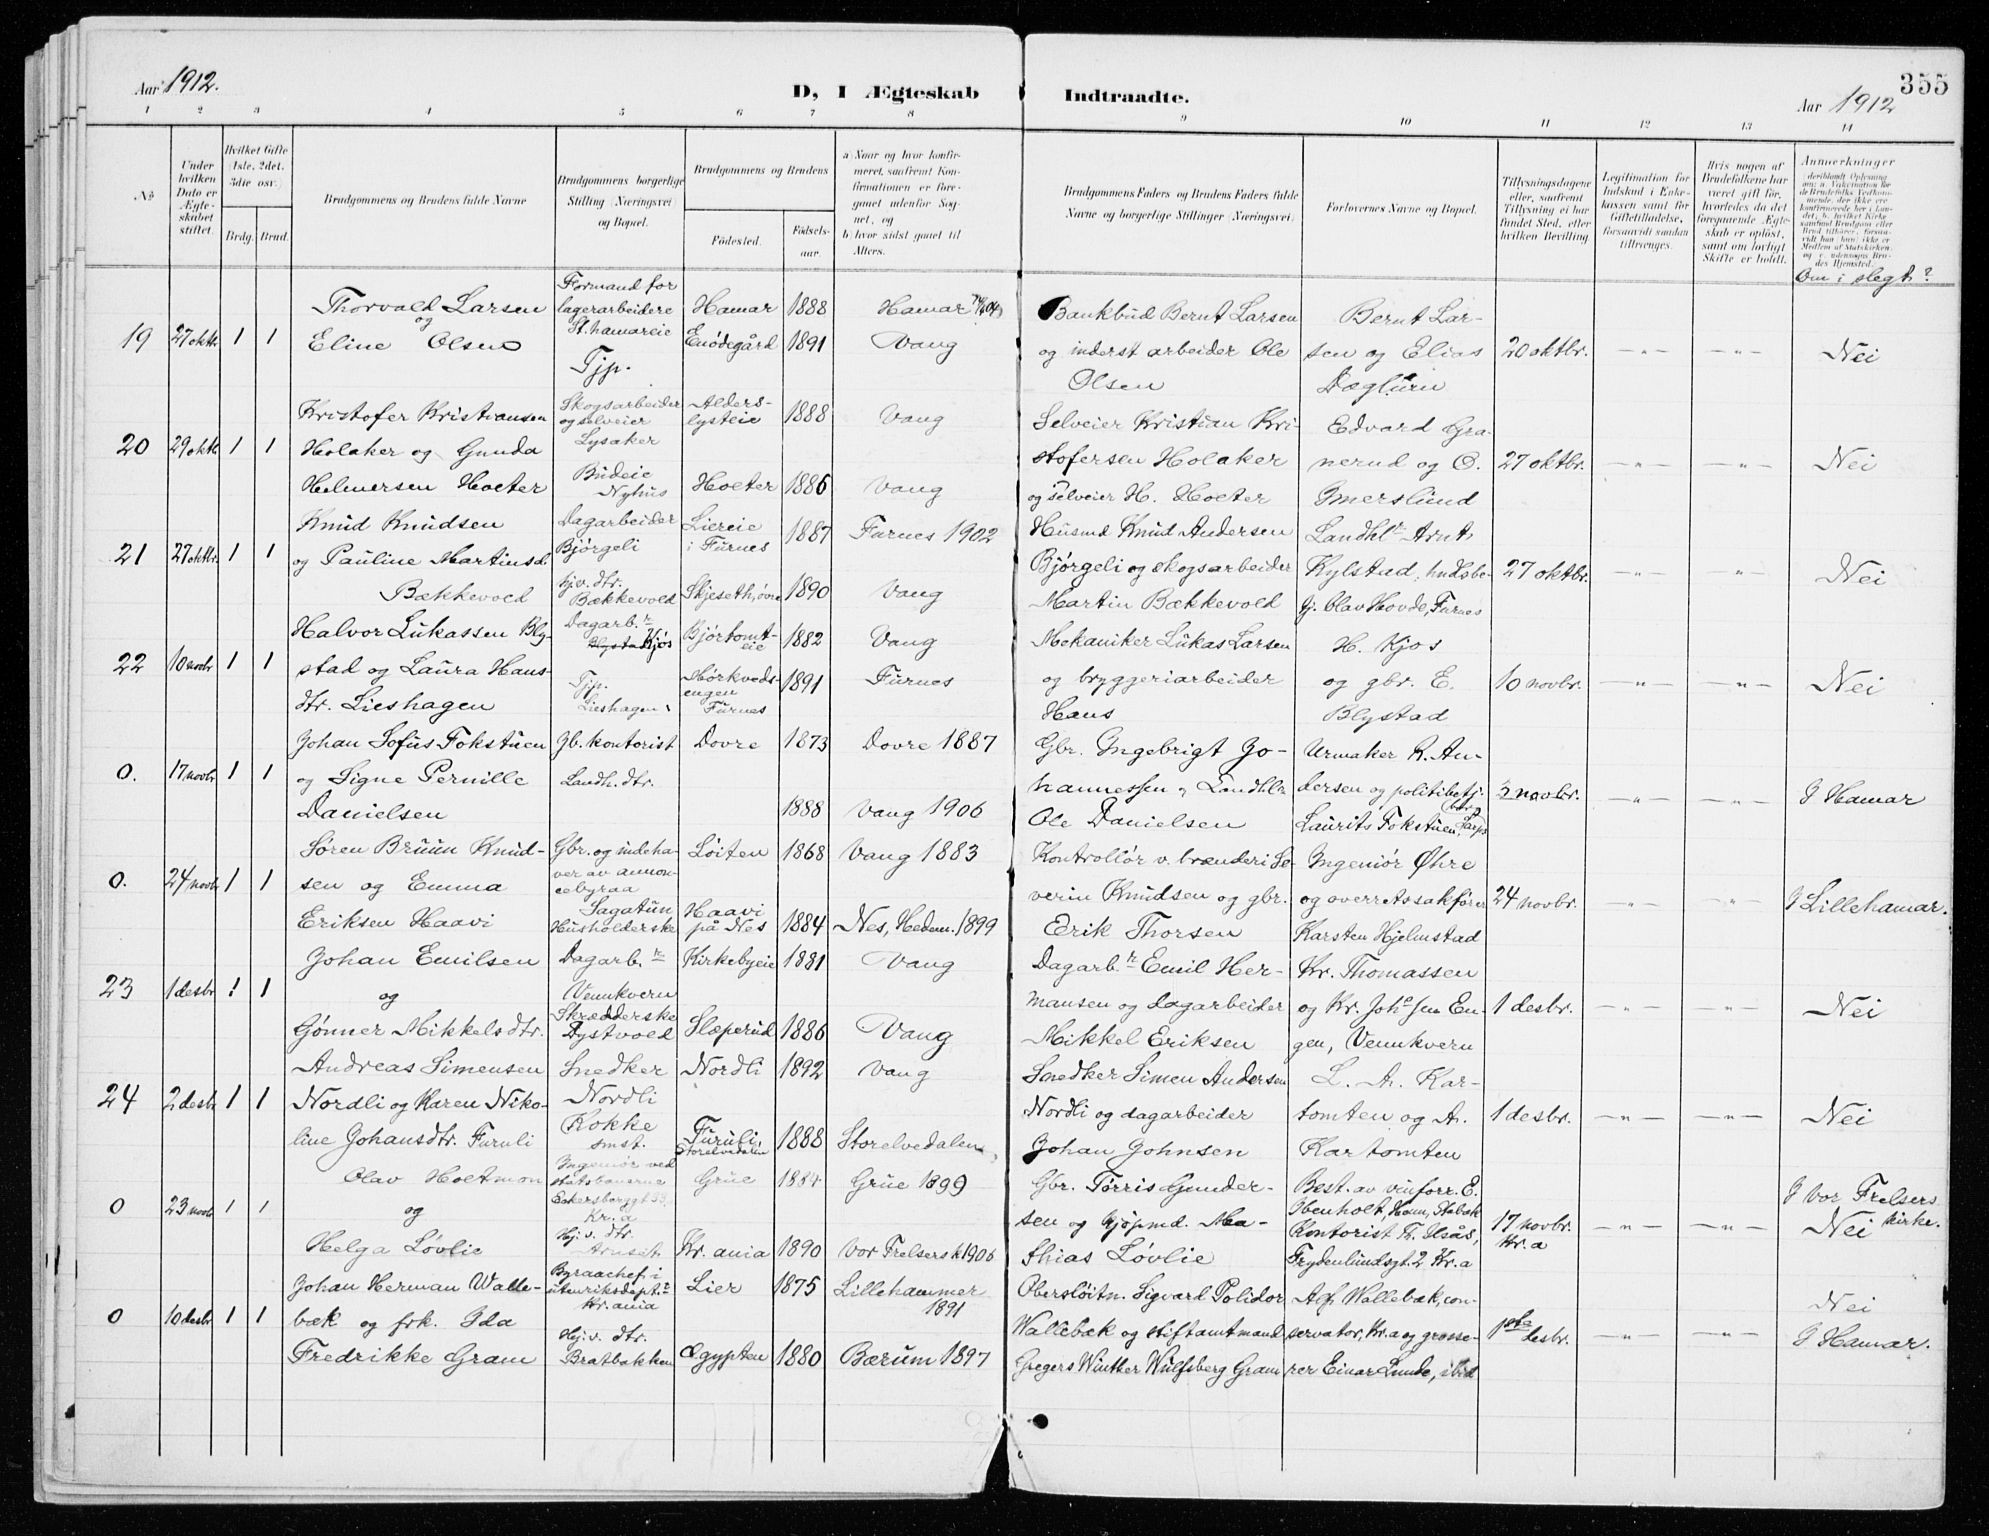 Aar 1912.
D, I Ægteskab Indtraadte.
355
Aar 1912
1 2 3 4 5 6 7 8 9 10 11 12 13 14
No
Under hvilken Dato er Ægteskabet stiftet.
Hvilket Gifte (1ste, 2det, 3die osv.)
Brdg. Brud.
Brudgommens og Brudens fulde Navne
Brudgommens borgerlige Stilling (Næringsvei) og Bopæl.
Brudgommens og Brudens
Fødested. Fødselsaar.
a) Naar og hvor konfirmeret, saafremt Konfirmationen er foregaaet udenfor Sognet, og
b) hvor sidst gaaet til Alters.
Brudgommens Faders og Brudens Faders fulde Navne og borgerlige Stillinger (Næringsvei)
Forlovernes Navne og Bopæl.
Tillysningsdagene eller, saafremt Tillysning ei har fundet Sted, efter hvilken Bevilling
Legitimation for Indskud i Enkekassen samt for Giftetilladelse, forsaavidt saadan tiltrænges.
Hvis nogen af Brudefolkene har været gift før, hvorledes da det foregaaende Ægteskab er opløst, samt om lovligt Skifte er holdt.
Anmerkninger
Om i slegt?
19 27 oktbr. 1 1 Thorvald Larsen og Eline Olsen
Formand for lagerarbeidere St. hamareie
Tjp.
Hamar 1888 Hamar
Enødegård 1891 Vang
Bankbud Bernt Larsen og inderst arbeider Ole Olsen
Bernt Larsen og Elias Dæglurn
20 oktbr. — " — — " — Nei
20 29 oktb. 1 1 Kristofer Kristiansen Holaker og Gunda Helmersen Hoeter
Skogsarbeider og selveier Lysaker
Budeie Nyhus
Alderslysteie 1888 Vang
Hoeter 1886 Vang
Selveier Kristian Kristofersen Holaker og selveier H. Hoeter
Edvard Granerud og O. Imerslund
27 oktbr. — " — — " — Nei
21 27 oktbr. 1 1 Knud Knudsen og Pauline Martinsd. Bækkevold
Dagarbeider Bjørgeli
hjv. dtr. Bækkevold
Liereie i Furnes 1887 Furnes 1902
Skjeseth, øvre 1890 Vang
Husmd Knud Andersen Bjørgeli og skogsarbeider Martin Bækkevold
Landhl. Arnt Kylstad, Olav Hovde, Furnes
27 oktbr. — " — — " — Nei
22 10 novbr. 1 1 Halvor Lukassen Blystad og Laura Hansdtr. Lieshagen
Dagarb.r Kjøs
Tjp. Lieshagen
Bjørtomteie 1882 Vang
Hørkvedsengen Furnes 1891 Furnes
Mekaniker Lukas Larsen og bryggeriarbeider Hans
H. Kjos og gbr. E. Blystad
10 novbr. — " — — " — Nei
0. 17 novbr 1 1 Johan Sofus Fokstuen og Signe Pernille Danielsen
Jb. kontorist
Landh. dtr.
Dovre 1873 Dovre 1887
1888 Vang 1906
Gbr. Ingebrigt Johannessen og Landhl. Ole Danielsen
Urmaker R. Andersen og politibetj. Laurits Fokstuen,
3 novbr. — " — — " — I Hamar
0. 24 novbr 1 1 Søren Bruun Knudsen og Emma Eriksen Haavi
Gbr. og indehaver av annoncebyraa Sagatun
Husholderske
Løiten 1868 Vang 1883
Haavi på Nes 1884 Nes, Hedem. 1899
Kontrollør v. brænderi Severin Knudsen og gbr. Erik Thorsen
Ingeniør Øhre og overretssakfører Karsten Hjelmstad
24 novbr. — " — — " — I Lillehamar.
23 1 desbr 1 1 Johan Emilsen og Gønner Mikkelsdtr.
Dagarb.r Vennkvern
Skrædderske Dystvold
Kirkebyeie 1881 Vang
Slæperud 1886 Vang
Dagarb.r Emil Hermansen og dagarbeider Mikkel Eriksen
Kr. Thomassen og Kr. Johsen Engen, Vennkvern
1 desbr. — " — — " — Nei
24 2 desbr 1 1 Andreas Simensen Nordli og Karen Nikoline Johansdtr. Furuli
Snedker Nordli
Kokke smst.
Nordli 1892 Vang
Furuli Storelvedalen 1888 Storelvedalen
Snedker Simen Andersen Nordli og dagarbeider Johan Johnsen
L. A. Kartomten og A. Kartomten
1 desbr. — " — — " — Nei
0 23 novbr 1 1 Olav Hoetmon og Helga Løvlie
Ingeniør ved statsbanerne Eckersberggt 33, Kr.a
Hj. v. dtr.
Grue 1884 Grue 1899
Kr.ania 1890 Vor Frelsers k 1906
Gbr. Tørris Gundersen og kjøpmd. Mathias Løvlie
Best. av vinforr. E. Ibenholt, Stabæk Kontorist Th. Usås, Frydenlundsgt. 2 Kr.a
17 novbr. Kr.a — " — — " — I Vor Frelsers kirke. Nei
0 10 desbr 1 1 Johan Herman Wallebæk og frk. Ida Fredrikke Gram
Byraachef i utenriksdept. Kr.ania
Hj. v. dtr. Bratbakken
Lier 1875 Lillehammer 1891
Ægypten 1880 Bærum 1897
Oberstløitn. Sigvard Polidor Wallebæk og stiftamtmand Gregers Winther Wulfsberg Gram
Adf Wallebæk, conservator, Kr.a og grosserer Einar Lunde, ibid
1ste desbr. — " — — " — Nei I Hamar.